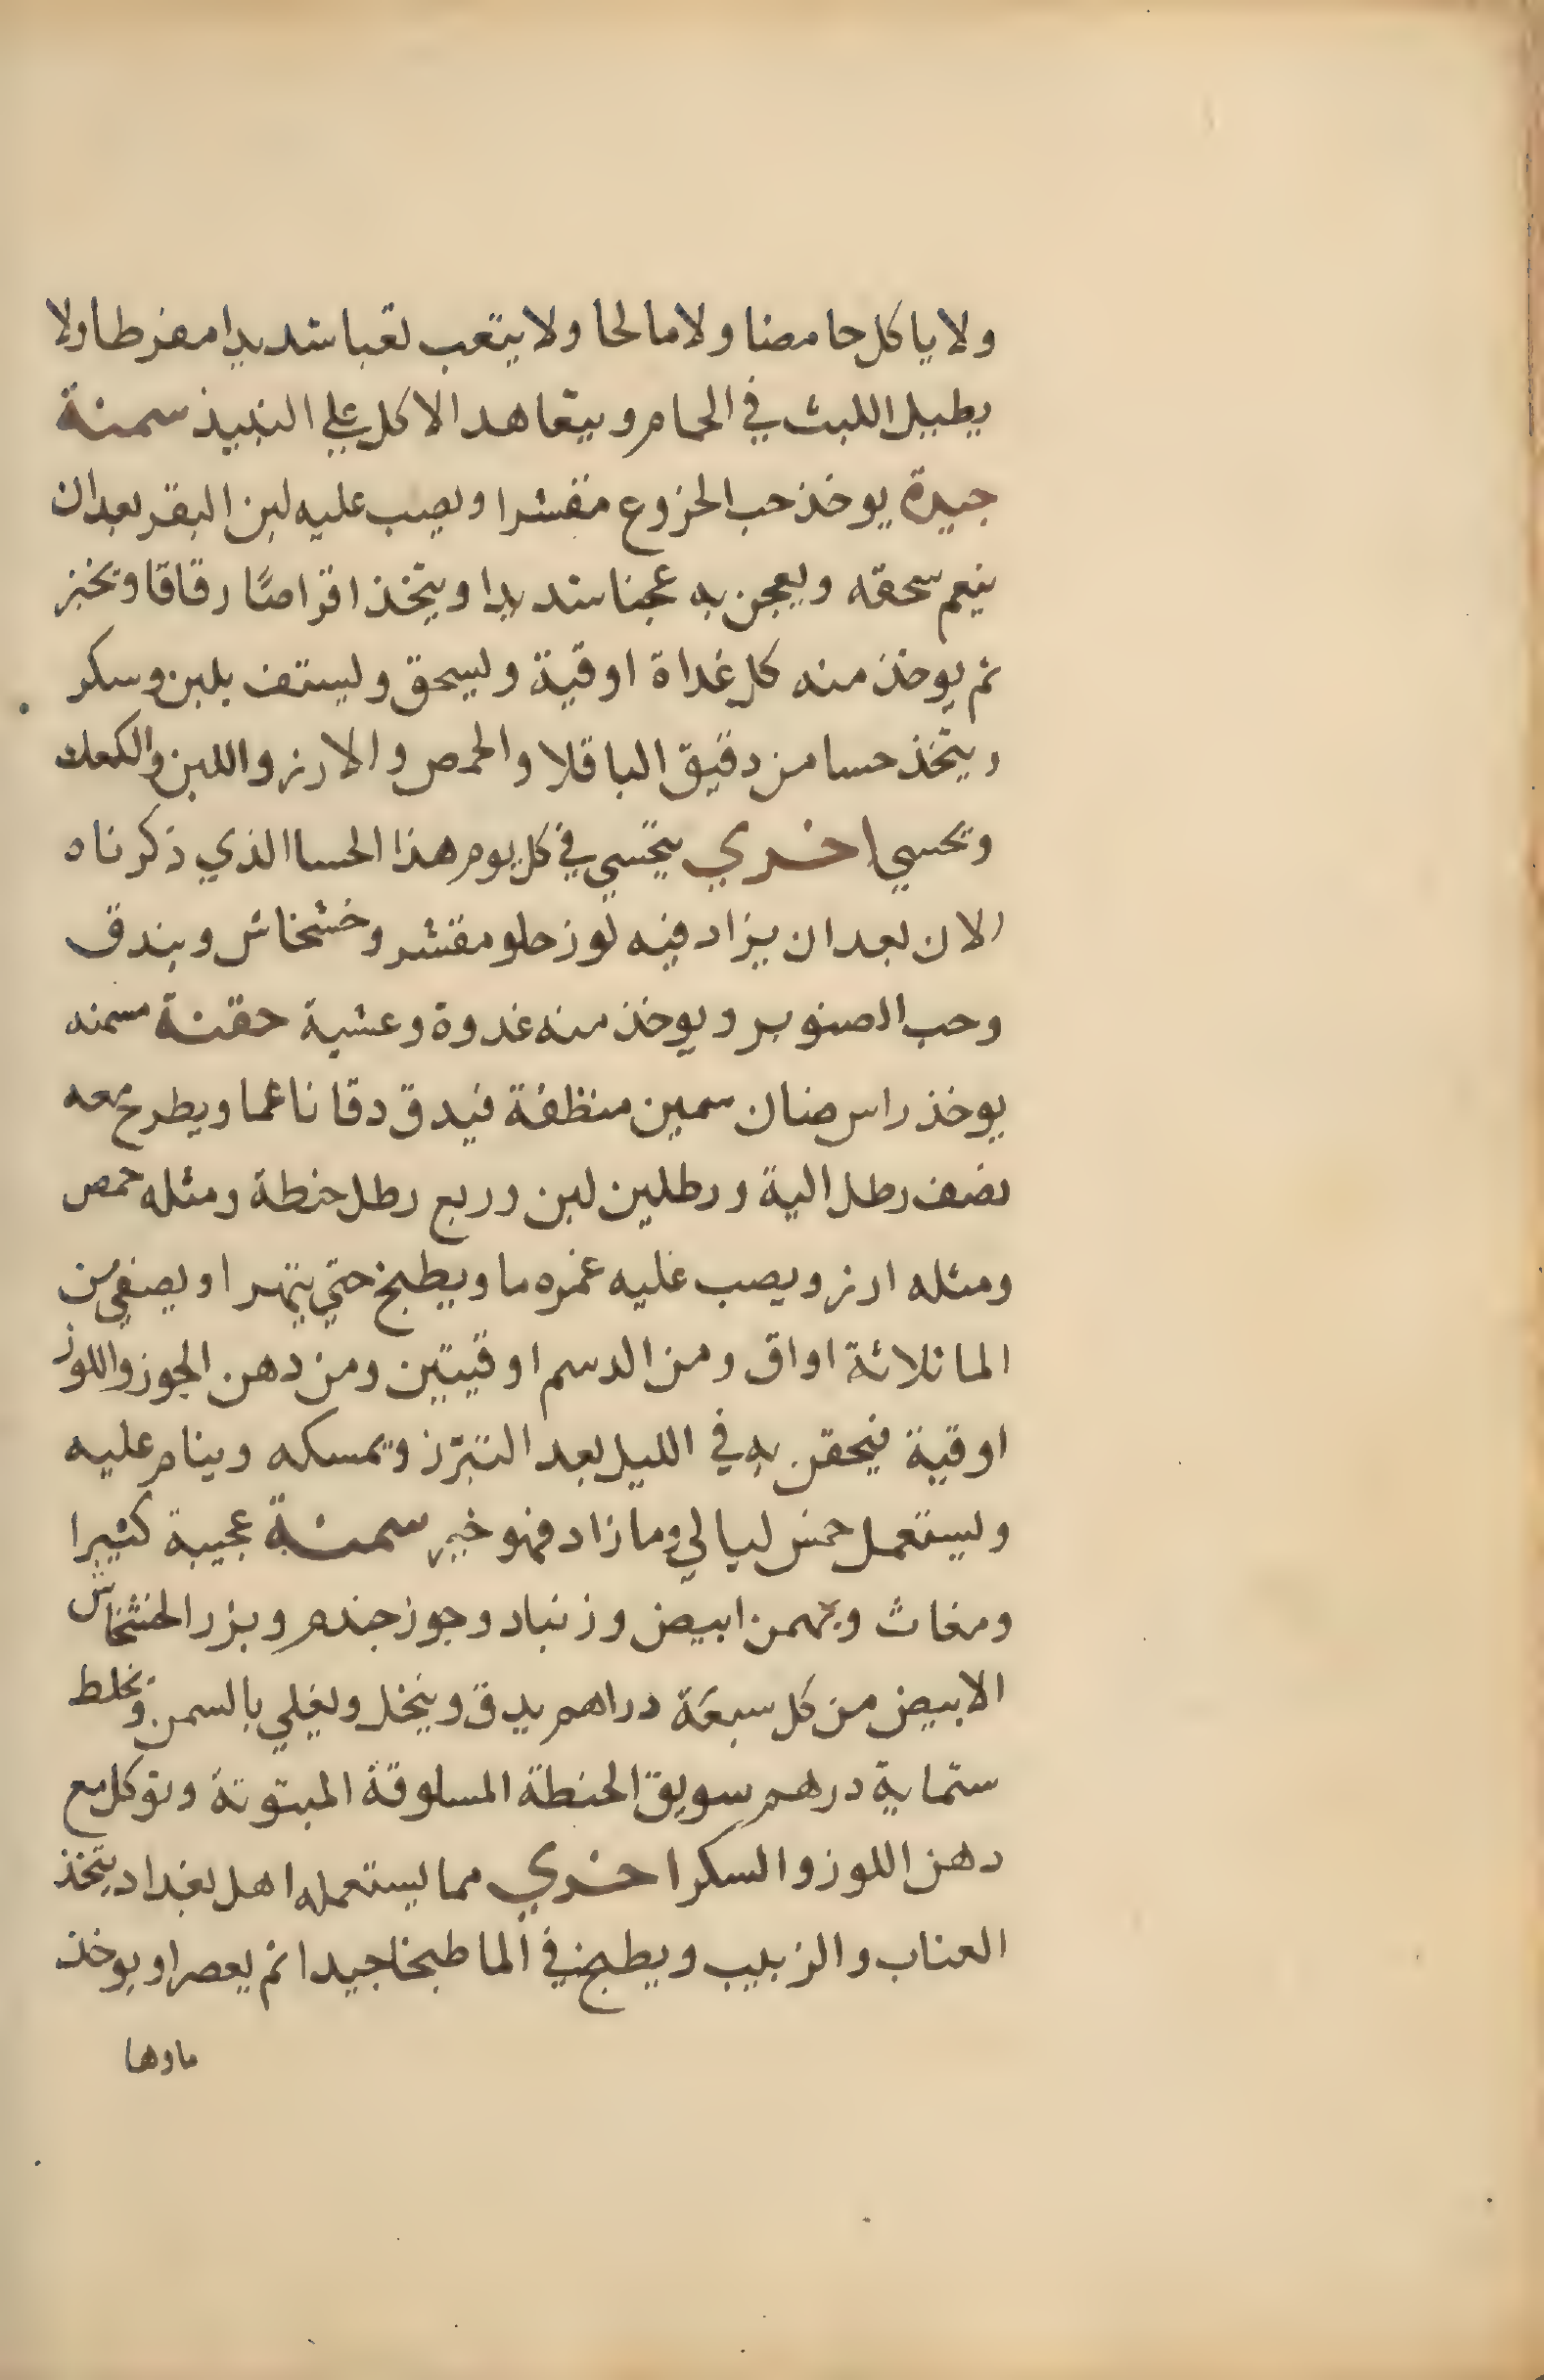 ولا ياكل حامضا ولا مالحا ولا يتعب تعبا شديدا مفرطا ولا
يطيل اللبث في الحمام ويتعاهد الاكل علي النبيذ سمنة
جيدة يوخذ حب الخروع مقشرا ويصب عليه لبن البقر بعد ان
ينعم سحقه ويعجن به عجنا شديدا ويتخذ اقراصًا رقاقا وتخبز
ثم يوخذ منه كل غداة اوقية وليسحق وليستف بلبن وسكر
ويتخذ حسا من دقيق الباقلا والحمص والارز واللبن والكعك
وتحسي اخري يتحسي في كل يوم هذا الحسا الذي ذكرناه
الان بعد ان يزاد فيه لوز حلو مقشر وخشخاش وبندق
وحب الصنوبر ويوخذ منه غدوة وعشية حقنة مسمنه
يوخذ راس ضان سمين منظفة فيدق دقا ناعما ويطرح معه
نصف رطل الية ورطلين لبن وربع رطل حنطة ومثله حمص
ومثله ارز ويصب عليه غمره ما ويطبخ حتي يتهرا ويصفي من
الما ثلاثة اواق ومن الدسم اوقيتين ومن دهن الجوز واللوز
اوقية فيحقن به في الليل بعد التبرّز ويمسكه وينام عليه
وليستعمل خمس ليالي وما زاد فهو خير سمنة عجيبة كثيرا
ومغاث وبهمن ابيض وزنباد وجوز جندم وبزر الخشخاش
الابيض من كل سبعة دراهم يدق وينخل ويغلي بالسمن وتخلط
ستماية درهم سويق الحنطة المسلوقة المبتوتة وتوكل مع
دهن اللوز والسكر اخري مما يستعمله اهل بغداد يتخذ
العناب والزبيب ويطبخ في الما طبخا جيدا ثم يعصر او يوخذ
ماوها